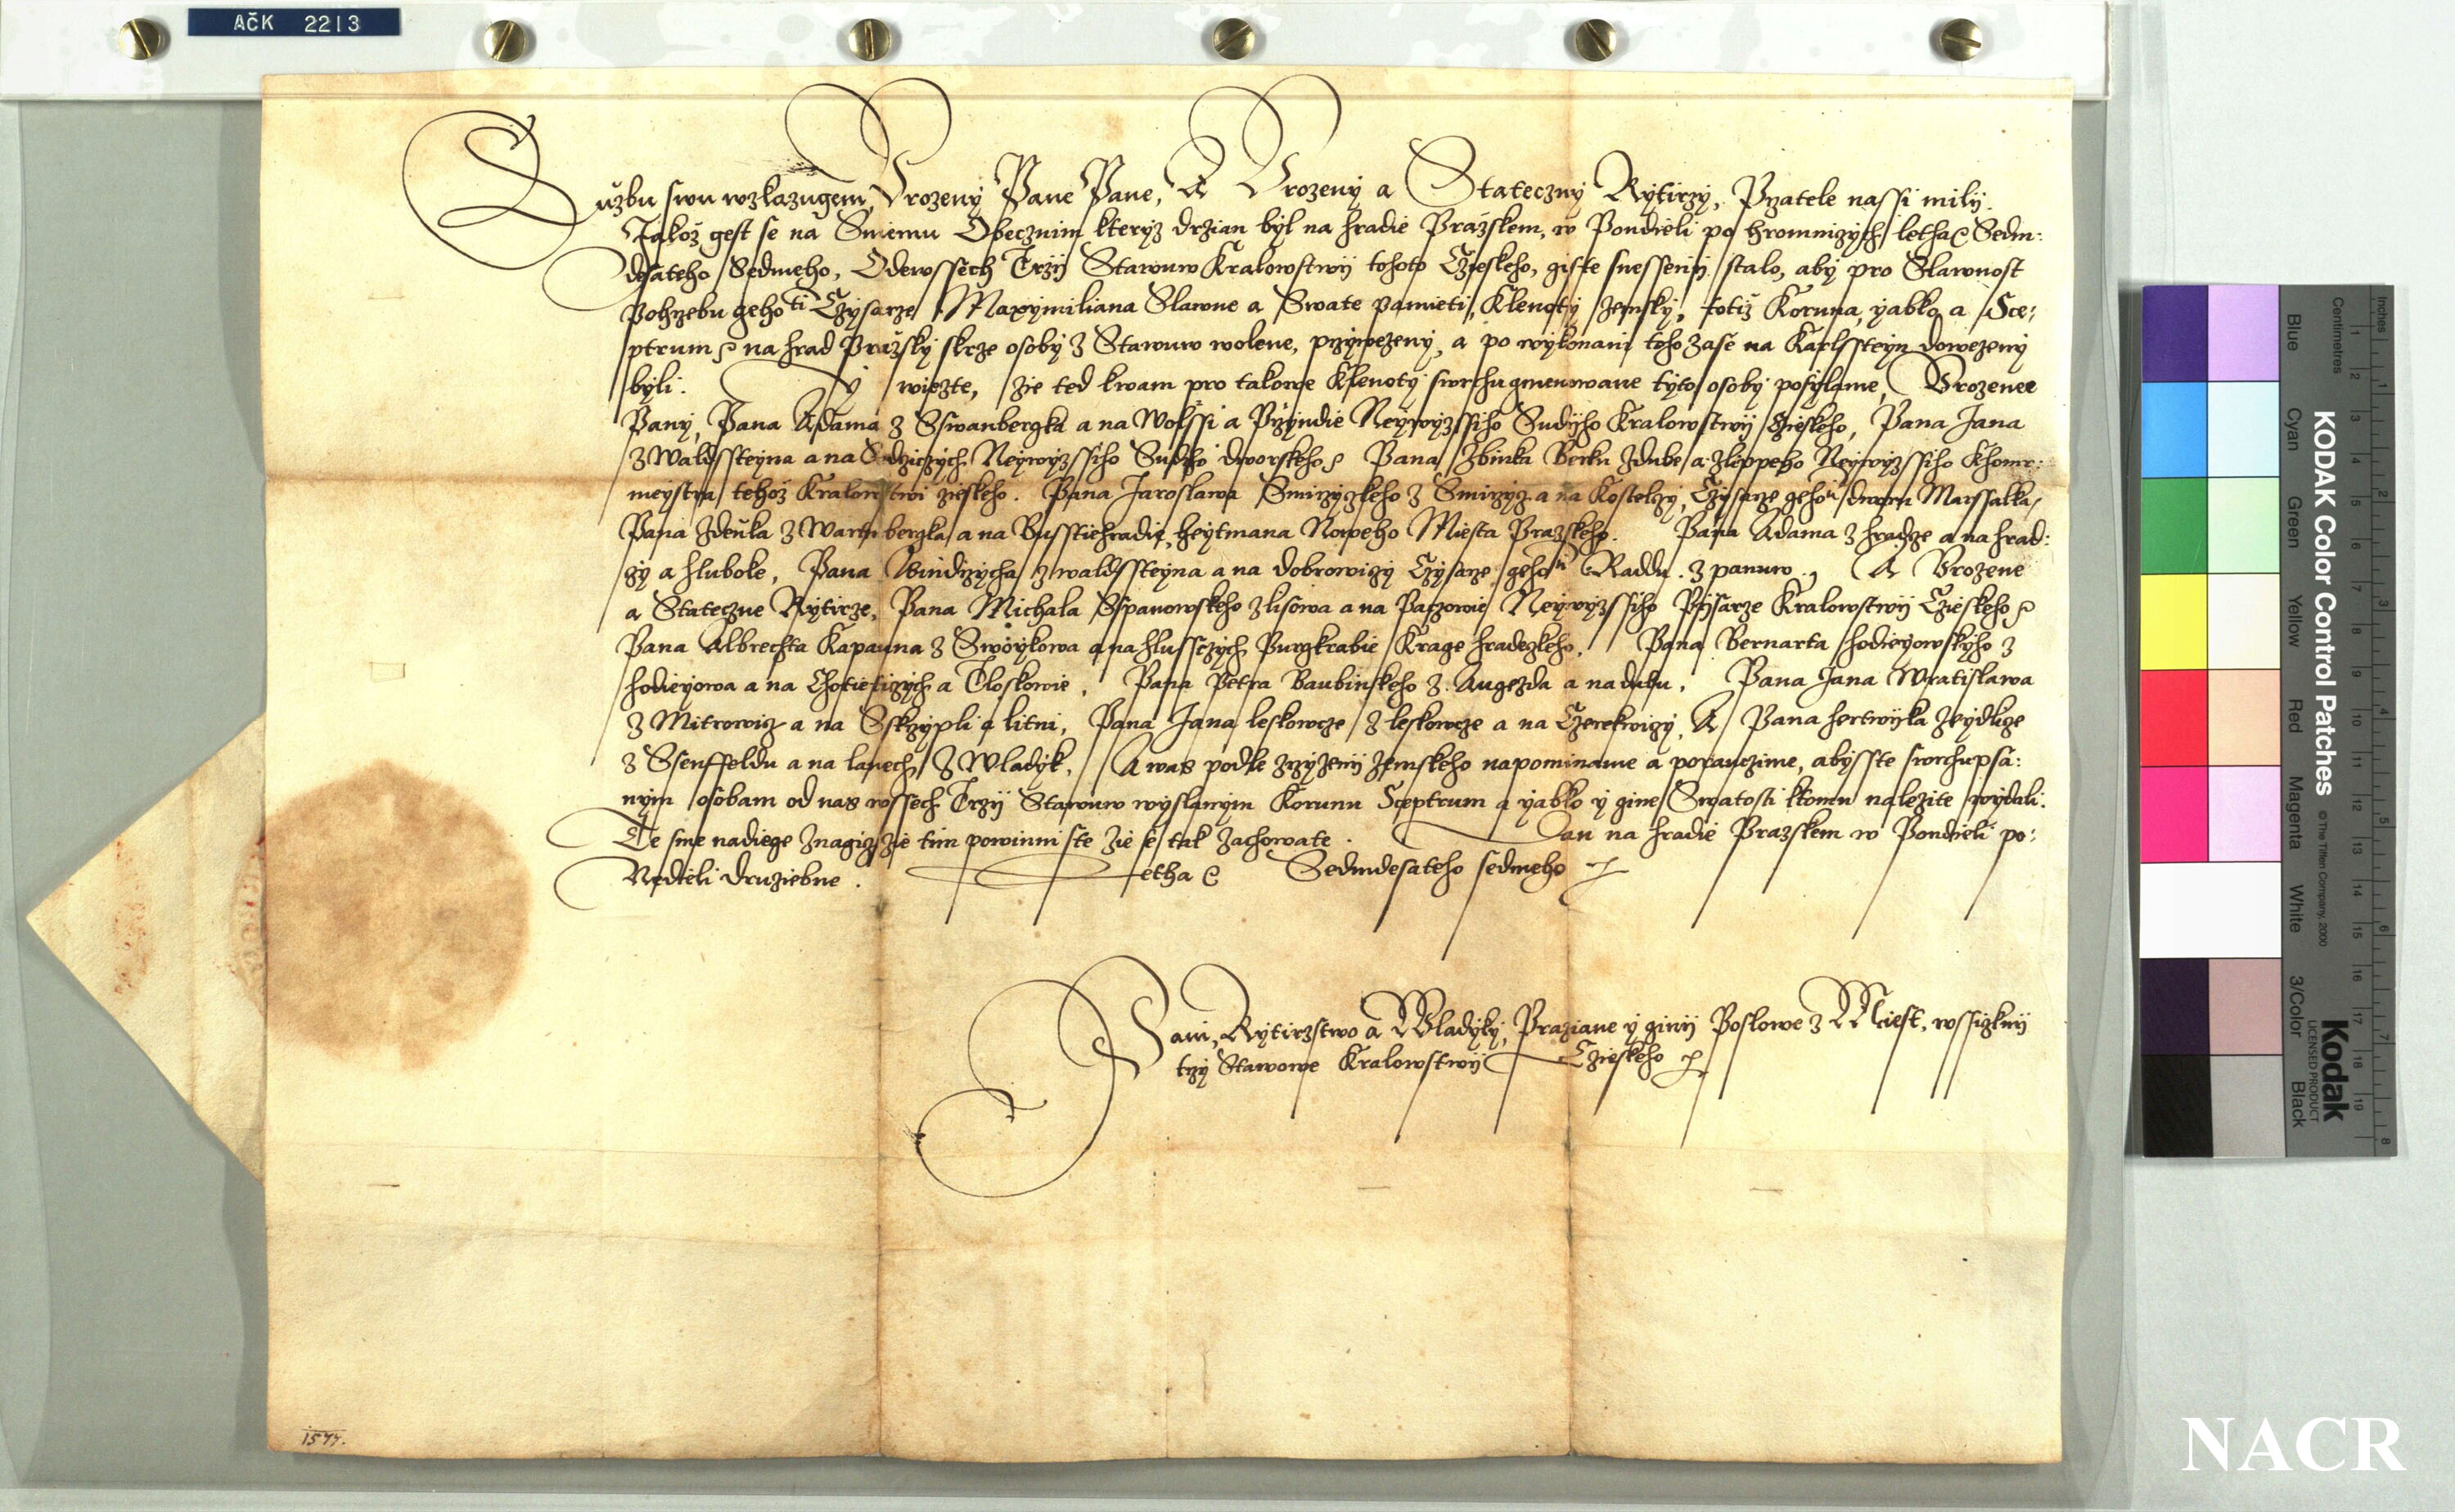 AČK 2213
Službu swu wzkazugem, Vrozeny Pane Pane, A Vrozeny a Stateczny Rytirzy, Przatele nassi milij.
Jakoz gest se na Sniemu Obecznim kteryz drzian byl na hradie Prazskem, w Pondieli po hromniczych letha Sedm:
desateho Sedmeho, Odewssech Trzij Stawuw Kralowstwij tohoto Czieskeho, giste snessenij stalo, aby pro Slawnost
Pohrzebu geho ti Czysarze Maxymiliana Slawne a Swate pamieti, Klenoty zemsky, totiz Koruna, yablo a Sce:
ptrum na hrad Prazsky skrze osoby z Stawuw wolene, przywezeny, a po wykonani toho zase na Karlssteyn dowezeny
byli. Y wiezte, zie ted kwam pro takowe Klenoty swrchugmenowane tyto osoby posylame, Vrozenee
Pany, Pana Adama z Sswanbergka a na Worssi a Przyndie Neywyzssiho Sudyho Kralowstwij Czieskeho, Pana Jana
z Waldssteyna a na Sedcziczych Neywyzssiho Sudzho dworskeho Pana Zbinka Berku zdube a zleppeho Neywyzssiho Khomr:
meystra tehoz Kralowstwi zieskeho. Pana Jaroslawa Smirzyczkeho z Smirzycz a na Kosteleczy, Czysarze geho ti dworu Marssalka,
Pana Zdenka z Wartnbergka a na Busstiehradie, heytmana Noweho Miesta Prazskeho. Pana Adama z hradcze a na hrad:
czy a hluboke, Pana Windrzycha z waldssteyna a na dobrowiczy Czysarze geho ti Raddu. z panuw., A Vrozene
a Stateczne Rytirze, Pana Michala Sspanowskeho z lisowa a na Paczowie Neywyzssiho Pysarze Kralowstwij Czieskeho
Pana Albrechta Kapauna z Swoykowa a na hlussczych Purgkrabie Krage hradeczkeho, Pana Bernarta hodieyowskyho z
hodieyowa a na Chotieticzych a Tloskowie, Pana Petra Baubinskeho z Augezda a na dubu, Pana Jana Wratislawa
z Mitrowicz a na Sskrzypli a litni, Pana Jana leskowcze z leskowcze a na Czerekwiczy, A Pana hertwyka Zeydlicze
z Ssenffeldu a na lanech z Wladyk, A was podle zrzyzenij zemskeho napominame a poraucime, abysste swrchupsa:
nym osobam od nas wssech Trzij Stawuw wyslanym Korunu Sceptrum a yablo y gine Swatosti ktomu nalezite wydali.
Te sme nadiege znagicz zie tim powinni ste zie se tak zachowate. Dan na hradie Prazskem w Pondieli po:
Nedieli Druziebne. Letha Sedmdesateho sedmeho
Pani, Rytirzstwo a Wladyky, Praziane y ginij Poslowe z Miest, wssiczknij
trzy Stawowe Kralowstwij Czieskeho
1577.
Inches
Centimetres
KODAK Color Control Patches
© The Tiffen Company, 2000
Blue Cyan Green Yellow Red Magenta White 3/Color Black
Kodak
LICENSED PRODUCT
NACR